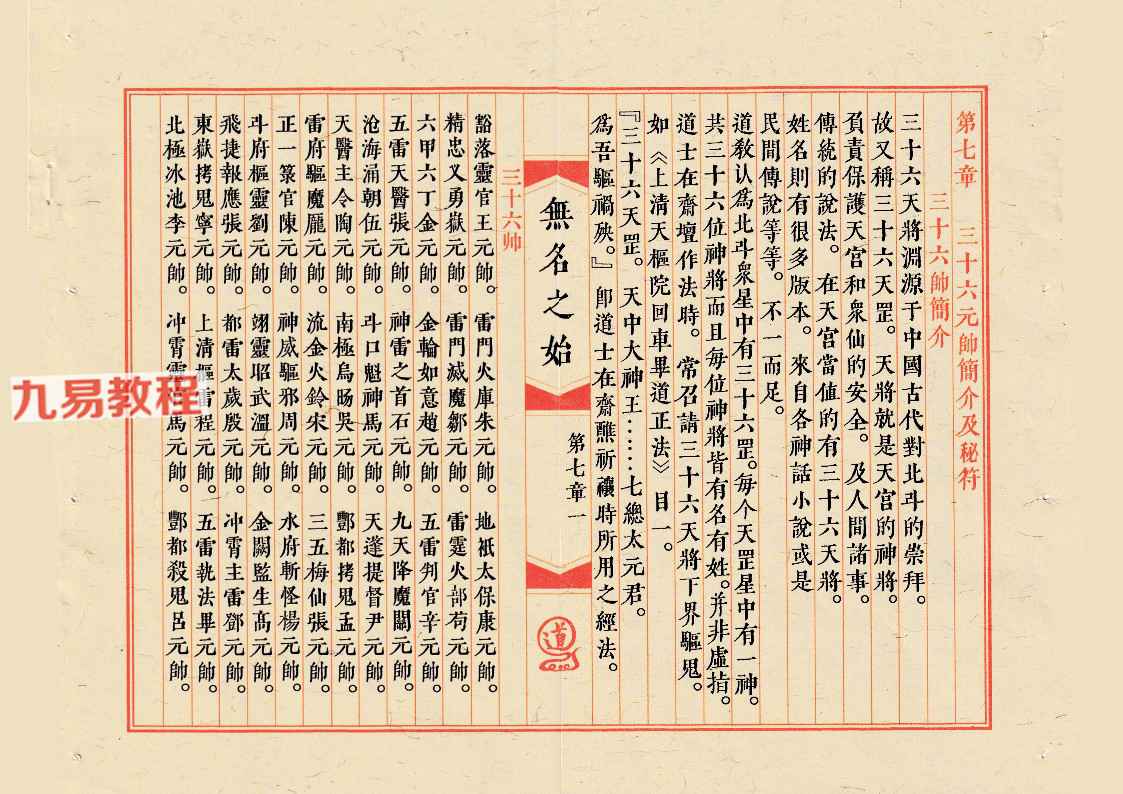 第七章　三十六元帥簡介及秘符
三十六帥簡介
三十六天將淵源于中國古代對北斗的崇拜。
故又稱三十六天罡。天將就是天宫的神將。
負責保護天宫和衆仙的安全。及人間諸事。
傳統的說法。在天宫當值的有三十六天將。
姓名則有很多版本。來自各神話小說或是
民間傳說等等。不一而足。
道教认爲北斗衆星中有三十六罡。每个天罡星中有一神。
共三十六位神將而且每位神將皆有名有姓。并非虛指。
道士在齋壇作法時。常召請三十六天將下界驅鬼。
如《上清天樞院回車畢道正法》目一。
『三十六天罡。天中大神王……七總太元君。
爲吾驅禍殃。』卽道士在齋醮祈禳時所用之經法。
無名之始
第七章一
道
三十六帅
豁落靈官王元帥。雷門火庫朱元帥。地祇太保康元帥。
精忠义勇嶽元帥。雷門滅魔鄒元帥。雷霆火部苟元帥。
六甲六丁金元帥。金輪如意趙元帥。五雷判官辛元帥。
五雷天醫張元帥。神雷之首石元帥。九天降魔關元帥。
沧海涌朝伍元帥。斗口魁神馬元帥。天蓬提督尹元帥。
天醫主令陶元帥。南極烏暘吳元帥。酆都拷鬼孟元帥。
雷府驅魔龐元帥。流金火鈴宋元帥。三五梅仙張元帥。
正一箓官陳元帥。神威驅邪周元帥。水府斬怪楊元帥。
斗府樞靈劉元帥。翊靈昭武溫元帥。金闕監生高元帥。
飛捷報應張元帥。都雷太歲殷元帥。冲霄主雷鄧元帥。
東嶽拷鬼寧元帥。上清樞雷程元帥。五雷執法畢元帥。
北極冰池李元帥。冲霄馬元帥。酆都殺鬼吕元帥。
九易教程